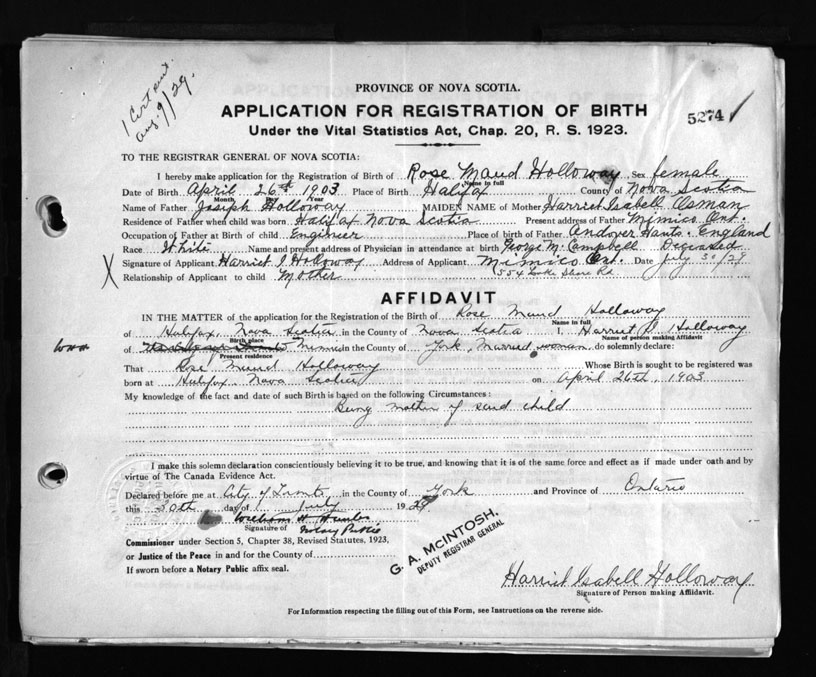 1 Cert ent.
Aug. 9/29.
PROVINCE OF NOVA SCOTIA.
APPLICATION FOR REGISTRATION OF BIRTH
5274
Under the Vital Statistics Act, Chap. 20, R. S. 1923.
TO THE REGISTRAR GENERAL OF NOVA SCOTIA:
I hereby make application for the Registration of Birth of Rose Maud Holloway Sex female
Name in full
Date of Birth April 26th 1903 Place of Birth Halifax County of Nova Scotia
Month Year
Name of Father Joseph Holloway MAIDEN NAME of Mother Harriet Isabell Osman
Residence of Father when child was born Halifax Nova Scotia Present address of Father Mimico Ont.
Occupation of Father at Birth of child Engineer Place of birth of Father Andover Hants. England
Race White Name and present address of Physician in attendance at birth George M. Campbell Deceased
X Signature of Applicant Harriet I Holloway Address of Applicant Mimico Ont. Date July 30/29
554 Lake Shore Rd.
Relationship of Applicant to child Mother
AFFIDAVIT
IN THE MATTER of the application for the Registration of the Birth of Rose Maud Holloway
Name in full
of Halifax, Nova Scotia in the County of Nova Scotia I, Harriet I. Holloway
Birth place Name of person making Affidavit
of Mimico in the County of York, Married woman do solemnly declare:
Present residence
That Rose Maud Holloway Whose Birth is sought to be registered was
born at Halifax Nova Scotia on April 26th, 1903
My knowledge of the fact and date of such Birth is based on the following Circumstances:
Being mother of said child
I make this solemn declaration conscientiously believing it to be true, and knowing that it is of the same force and effect as if made under oath and by
virtue of The Canada Evidence Act.
Declared before me at City of Toronto in the County of York and Province of Ontario
this 30th day of July 1929
William H. Hunter
Signature of Notary Public
Commissioner under Section 5, Chapter 38, Revised Statutes, 1923,
or Justice of the Peace in and for the County of
If sworn before a Notary Public affix seal.
G. A. McINTOSH,
DEPUTY REGISTRAR GENERAL
Harriet Isabell Holloway
Signature of Person making Affidavit.
For Information respecting the filling out of this Form, see Instructions on the reverse side.